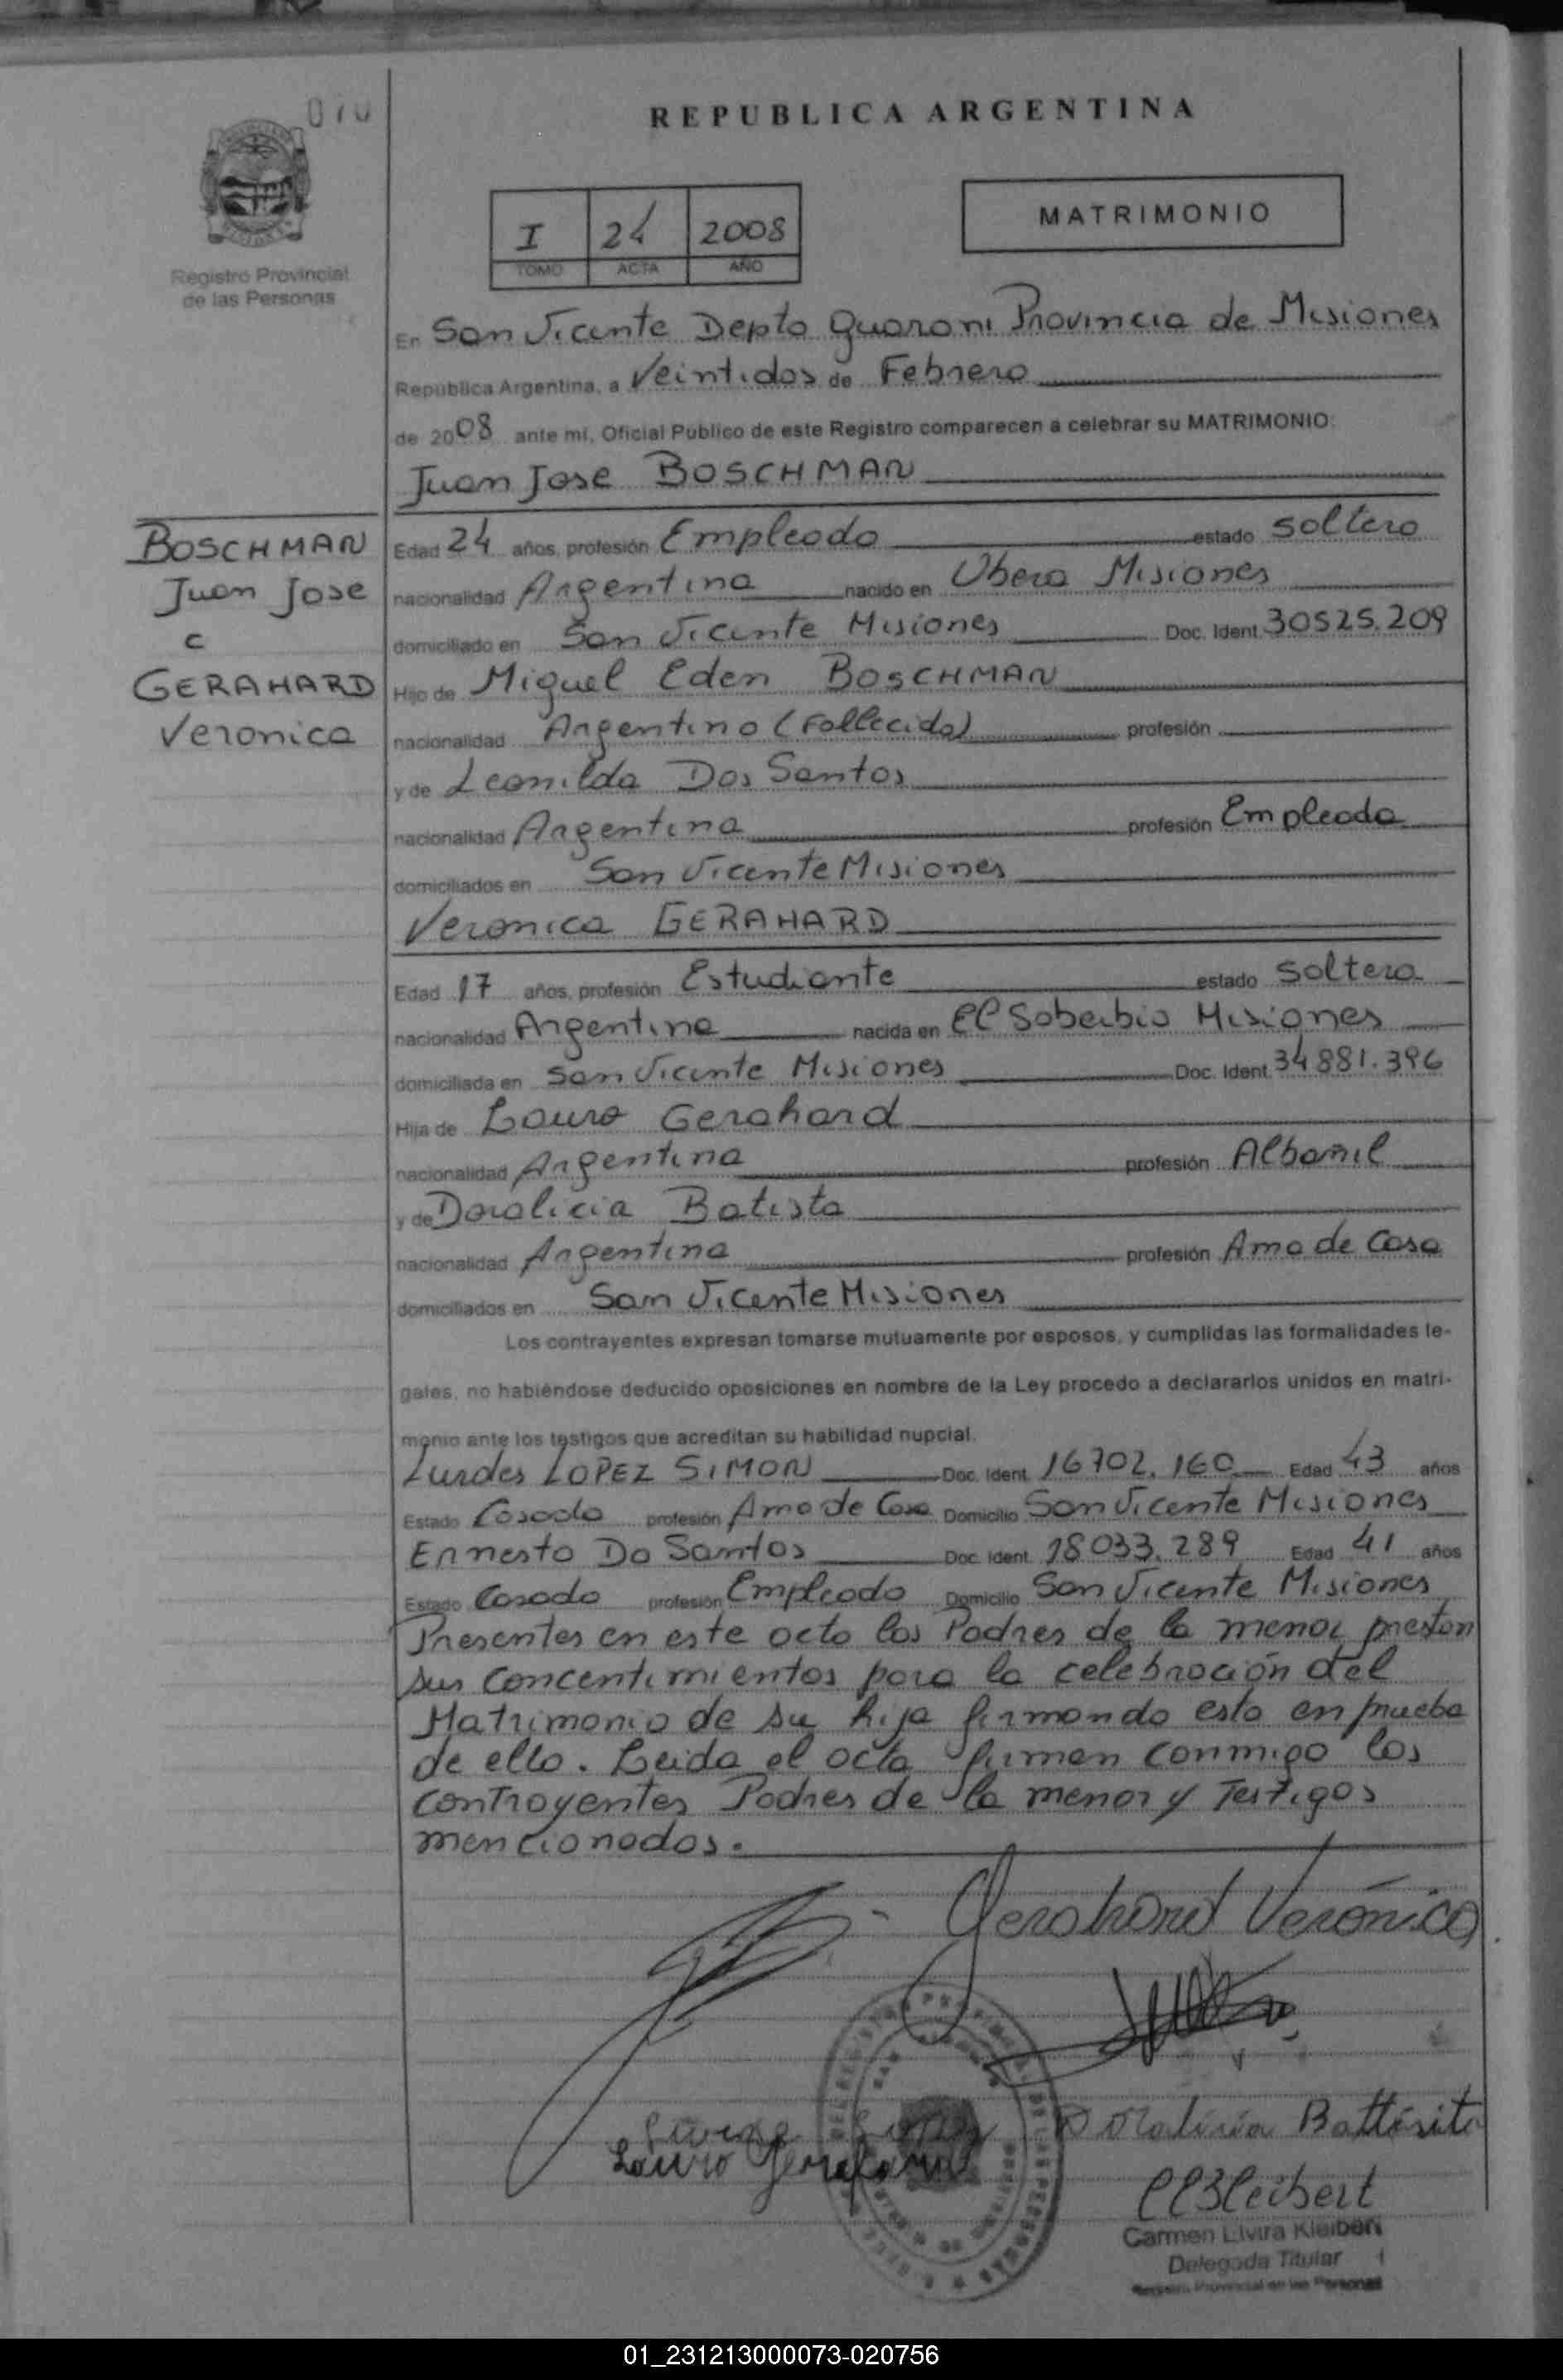 010
REPUBLICA ARGENTINA
MATRIMONIO
I 24 2008
TOMO ACTA AÑO
Registro Provincial
de las Personas
En San Vicente Depto Guarani Provincia de Misiones
República Argentina, a Veintidos de Febrero
de 2008 ante mi, Oficial Público de este Registro comparecen a celebrar su MATRIMONIO:
Juan Jose BOSCHMAN
BOSCHMAN
Juan Jose
c
GERAHARD
Veronica
Edad 24 años, profesión Empleado estado soltero
nacionalidad Argentina nacido en Obera Misiones
domiciliado en San Vicente Misiones Doc. Ident. 30525.209
Hijo de Miguel Eden BOSCHMAN
nacionalidad Argentino (Fallecido) profesión
y de Leonilda Dos Santos
nacionalidad Argentina profesión Empleada
domiciliados en San Vicente Misiones
Veronica GERAHARD
Edad 17 años, profesión Estudiante estado soltera
nacionalidad Argentina nacida en El Soberbio Misiones
domiciliada en San Vicente Misiones Doc. Ident. 34881.396
Hija de Lauro Gerahard
nacionalidad Argentina profesión Albañil
y de Doralicia Batista
nacionalidad Argentina profesión Ama de Casa
domiciliados en San Vicente Misiones
Los contrayentes expresan tomarse mutuamente por esposos, y cumplidas las formalidades le-
gales, no habiéndose deducido oposiciones en nombre de la Ley procedo a declararlos unidos en matri-
monio ante los testigos que acreditan su habilidad nupcial.
Lurdes LOPEZ SIMON Doc. Ident. 16702.160 Edad 43 años
Estado Casada profesión Ama de Casa Domicilio San Vicente Misiones
Ernesto Do Santos Doc. Ident. 18033.289 Edad 41 años
Estado Casado profesión Empleado Domicilio San Vicente Misiones
Presentes en este acto los Padres de la menor prestan
sus concentimientos para la celebración del
Matrimonio de su hija firmando esta en prueba
de ello. Leida el acta firman conmigo los
contrayentes Padres de la menor y Testigos
mencionados.
Gerahard Verónica
Doralicia Battisita
Lauro Gerahard
Carmen Elvira Kleibert
Delegada Titular
Registro Provincial de las Personas
01_231213000073-020756